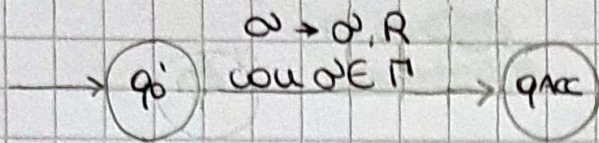 σ → σ, R
q₀' con σ ∈ Γ qACC